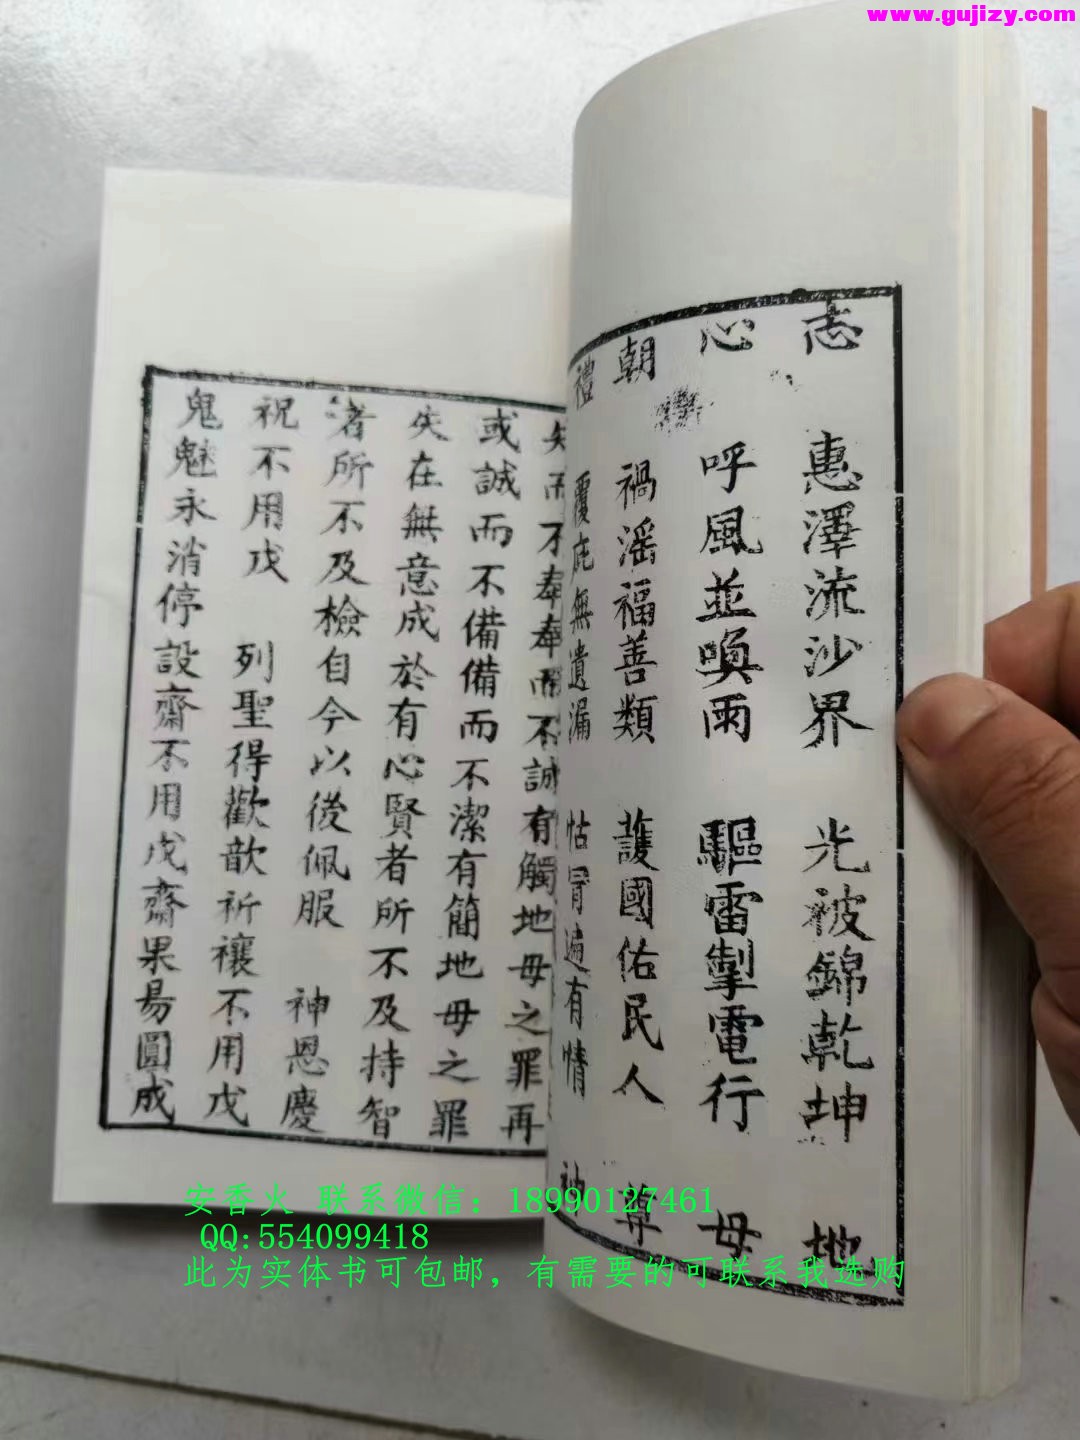 www.gujizy.com
志 惠澤流沙界 光被錦乾坤 地
心 呼風並喚雨 驅雷掣電行 母
朝 禍滛福善類 護國佑民人 尊
禮 覆庇無遺漏 怙冐遍有情 神
失而不奉奉而不誠有觸地母之罪再
或誠而不備備而不潔有簡地母之罪
失在無意成於有心賢者所不及持智
者所不及檢自今以後佩服 神恩慶
祝不用戊 列聖得歡歆祈禳不用戊
鬼魅永消停設齋不用戊齋果易圓成
安香火 联系微信：18990127461
QQ:554099418
此为实体书可包邮，有需要的可联系我选购